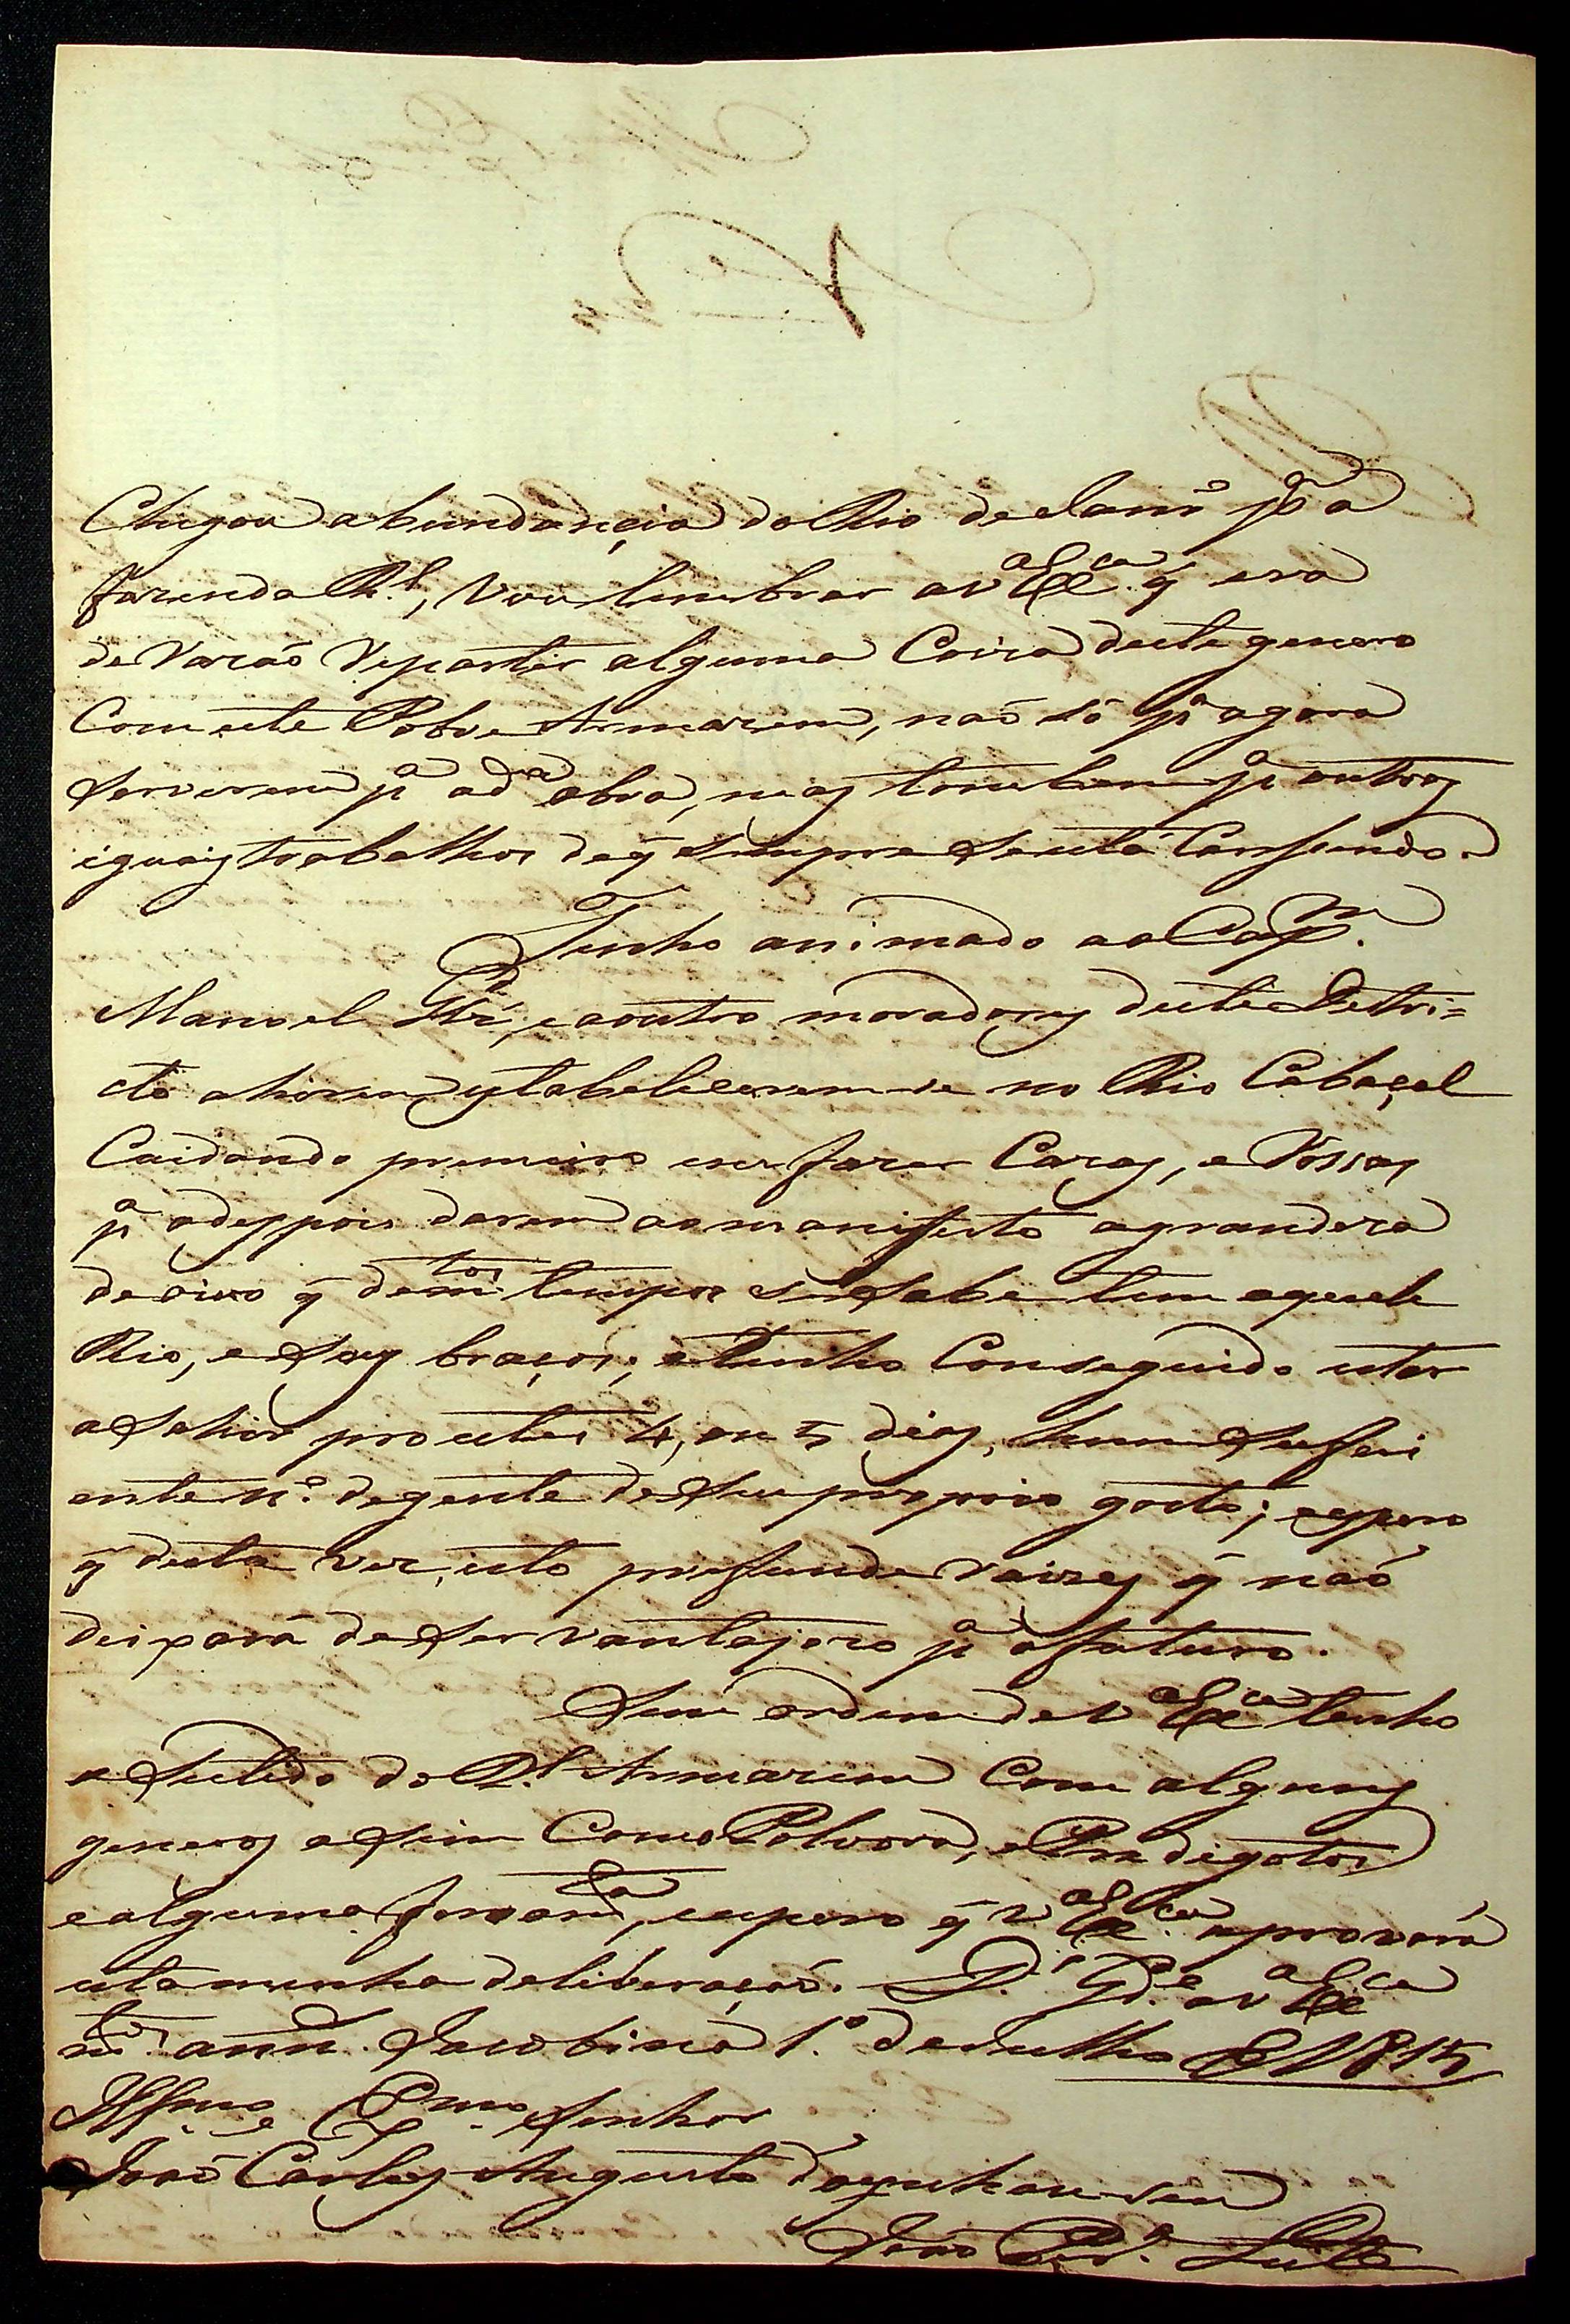 Chegou abundancia do Rio de Janrº pª a
Fazenda Rl, vou lembrar a V Exca q̃ era
de razaõ repartir alguma Coiza deste genero
Com este Pobre Armazem, naõ só pª agora
Servirem pª a da obra, mas tambem pª outros
iguais trabalhos de q̃ sempre se está Carssendo.
Tenho animado ao Capm
Manoel e a outros moradores deste Destri=
cto a hirem estabelecerem-se no Rio Cabaçal
Cuidando primeiro em fazer Cazas, e Rossas
pª adespois darem ao manifesto a grandeza
de oiro q̃ de mtos tempos se Sabe tem aquele
Rio, e Seus braços; e Tenho Conseguido estar
a Sahir pro estes 4, ou 5 dias, hum Sufeci
ente nº. de gente de Seu proprio gosto; e espero
q̃ desta vez, isto profunde raizes q̃ naõ
deixará de Ser vantajozo pª o futuro.
Sem ordem de V Exca tenho
aSestido do Rl. Armazem Com alguns
generos aSim Como Polvora, e Perdigotos
e alguma ferramta, espero q̃ V Exca aprovará
esta minha deliberaçaõ. Ds. Gde. a V Exca
ms. anns. Jacobina 1.º de Julho de 1815
Illmo e Exmo Senhor
Joaõ Carlos Augusto d'Oeynhausen
Joaõ Leite